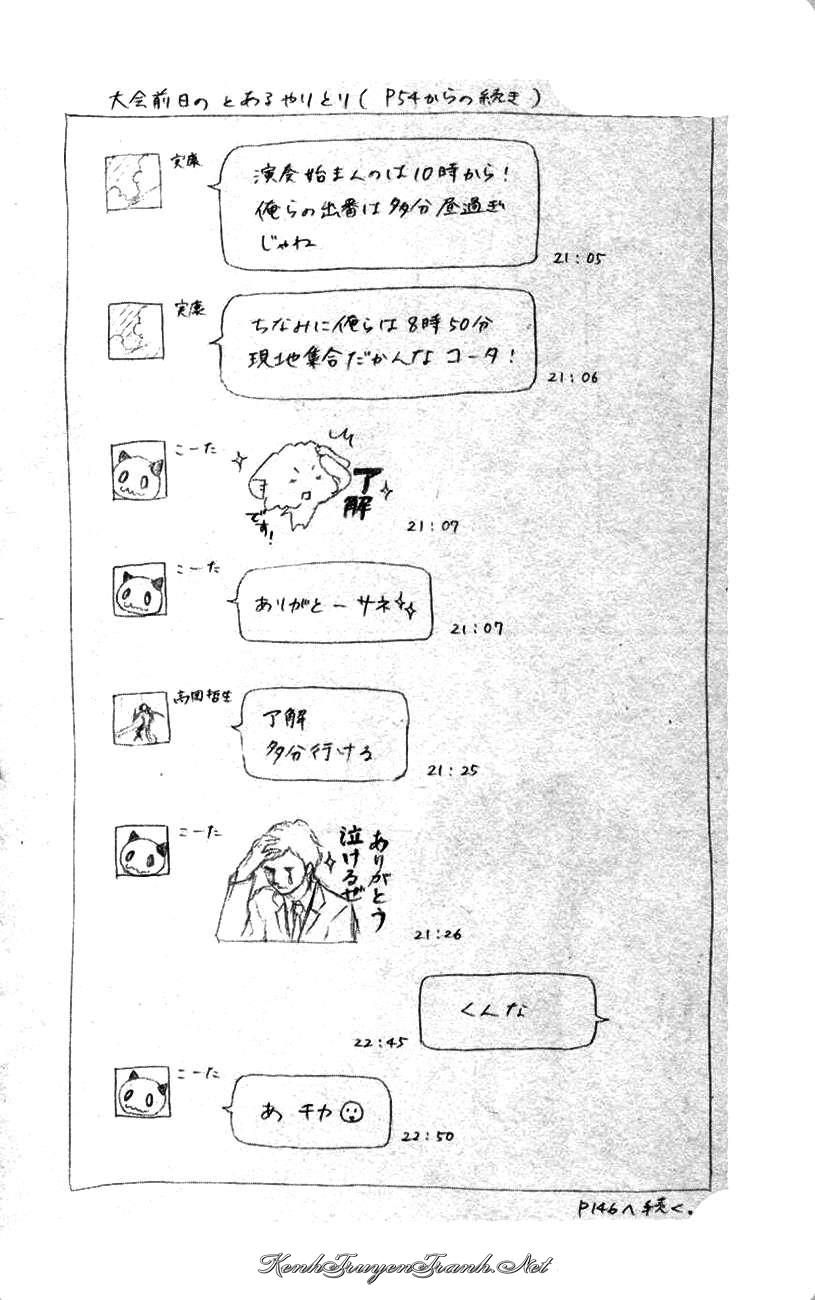 大会前日の とあるやりとり( P54からの続き )
実康
演奏始まんのは10時から!
俺らの出番は多分昼過ぎ
じゃね
21:05
実康
ちなみに俺らは8時50分
現地集合だかんな コータ!
21:06
こーた
了解
です!
21:07
こーた
ありがとーサネ
21:07
高岡哲生
了解
多分行ける
21:25
こーた
ありがとう
泣けるぜ
21:26
くんな
22:45
こーた
あ チカ
22:50
P146へ続く。
KenhTruyenTranh.Net